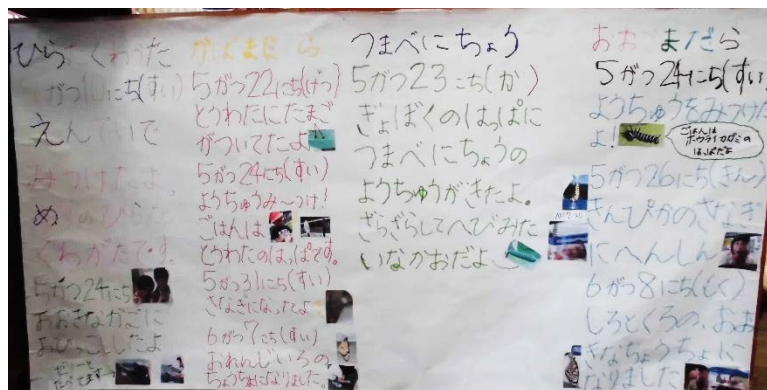 ひらたくわがた
5がつ10にち(すい)
えんていで
みつけたよ。
めすのひら
くわがたです。
5がつ24にち
おおきなかごに
おひっこししたよ
ゼリーを
たべてます
かばまだら
5がつ22にち(げつ)
とうわたにたまご
がついてたよ
5がつ24にち(すい)
ようちゅうみ~つけ!
ごはんは
とうわたのはっぱです。
5がつ31にち(すい)
さなぎになったよ
6がつ7にち(すい)
おれんじいろの
ちょうちょになりました。
つまべにちょう
5がつ23にち(か)
ぎょぼくのはっぱに
つまべにちょうの
ようちゅうがきたよ。
ざらざらしてへびみた
いなかおだよ
おおまだら
5がつ24にち(すい)
ようちゅうをみつけた
よ!
ごはんは
ホウライカガミの
はっぱだよ
5がつ26にち(きん)
きんぴかのさなぎ
にへんしん
6がつ8にち(もく)
しろとくろの、おお
きなちょうちょに
なりました